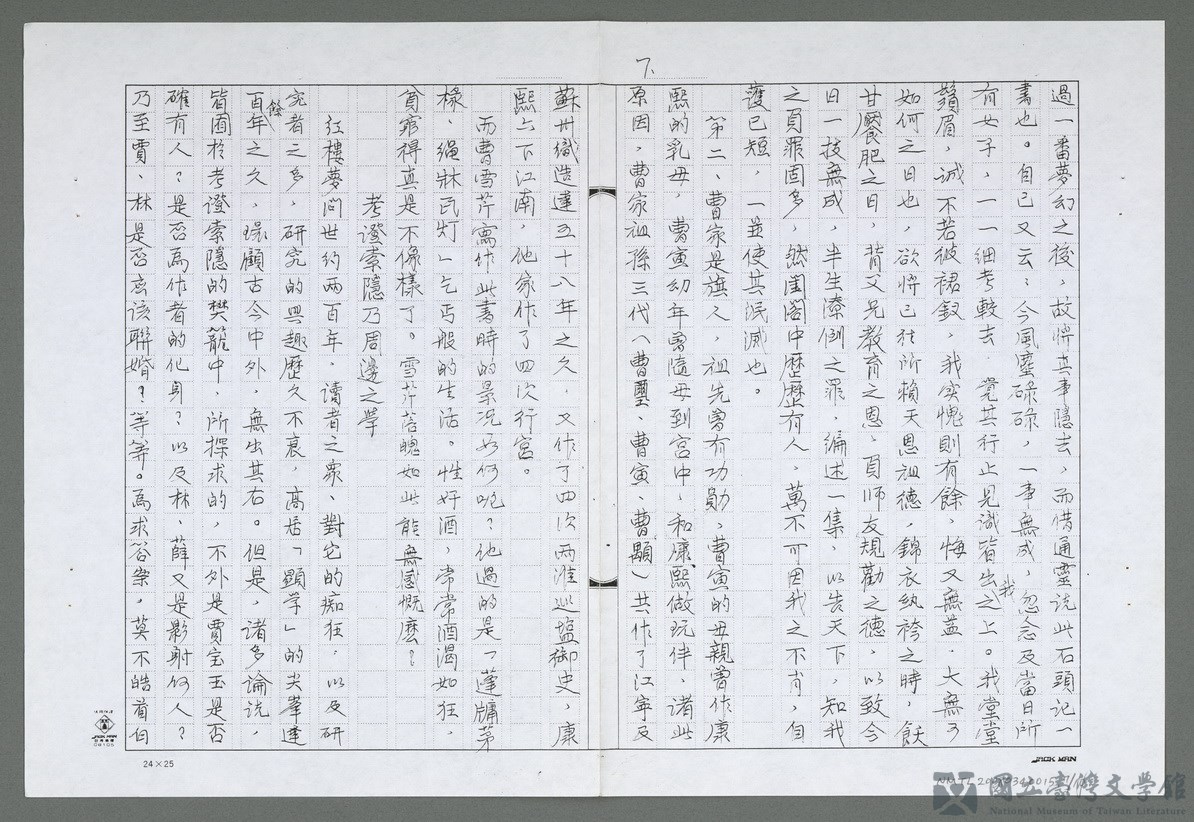 7.
過一番夢幻之後，故將真事隱去，而借通靈説此石頭記一
書也。自己又云：今風塵碌碌，一事無成，忽念及當日所
有女子，一一細考較去，覺其行止見識皆出我之上。我堂堂
鬚眉，誠不若彼裙釵，我实愧則有餘，悔又無益，大無可
如何之日也，欲將已往所賴天恩祖德，錦衣紈袴之時，飫
甘饜肥之日，背父兄教育之恩，負師友規勸之德，以致今
日一技無成，半生潦倒之罪，編述一集，以告天下，知我
之負罪固多，然閨閣中歷歷有人，萬不可因我之不肖，自
護已短，一並使其泯滅也。
第二、曹家是旗人，祖先曾有功勛，曹寅的母親曾作康
熙的乳母，曹寅幼年曾隨母到宮中，和康熙做玩伴，諸此
原因，曹家祖孫三代（曹璽、曹寅、曹顒）共作了江寧及
蘇州織造達五十八年之久，又作了四次兩淮巡塩御史，康
熙六下江南，他家作了四次行宮。
而曹雪芹寫作此書時的景況如何呢？他過的是「蓬牖茅
椽、繩牀瓦灯」乞丐般的生活。性好酒，常常酒渴如狂，
貧窮得真是不像樣了。雪芹落魄如此能無感慨麼？
考證索隱乃周邊之學
红樓夢问世约两百年，读者之衆、對它的痴狂，以及研
究者之多，研究的興趣歷久不衰，高居「顯学」的尖峯達
百餘年之久，環顧古今中外，無出其右。但是，诸多論说，
皆囿於考證索隱的樊籠中，所探求的，不外是賈宝玉是否
確有人？是否為作者的化身？以及林、薛又是影射何人？
乃至賈、林是否应該聯婚？等等。為求答案，莫不皓首白
24×25
JACK MAN
JACK MAN
國立臺灣文學館
National Museum of Taiwan Literature